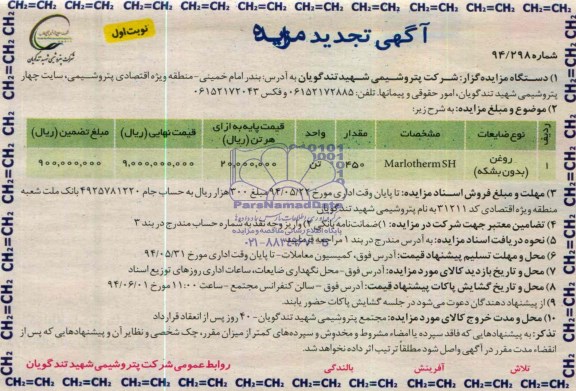 CH₂=CH₂ CH₂=CH₂ CH₂=CH₂ CH₂=CH₂ CH₂=CH₂ CH₂=CH₂ CH₂=CH₂ CH₂=CH₂
نوبت اول
آگهی تجدید مزایده
شرکت پتروشیمی شهید تندگویان
شماره ۹۴/۲۹۸
۱) دستگاه مزایده‌گزار: شرکت پتروشیمی شهید تندگویان به آدرس: بندر امام خمینی- منطقه ویژه اقتصادی پتروشیمی، سایت چهار
پتروشیمی شهید تندگویان، امور حقوقی و پیمانها. تلفن: ۰۶۱۵۲۱۷۲۸۸۵ و فکس ۰۶۱۵۲۱۷۲۰۴۳
۲) موضوع و مبلغ مزایده: به شرح زیر:
ردیف نوع ضایعات مشخصات مقدار واحد قیمت پایه به ازای هر تن (ریال) قیمت نهایی (ریال) مبلغ تضمین (ریال)
۱ روغن (بدون بشکه) Marlotherm SH ۴۵۰ تن ۲۰,۰۰۰,۰۰۰ ۹,۰۰۰,۰۰۰,۰۰۰ ۹۰۰,۰۰۰,۰۰۰
۳) مهلت و مبلغ فروش اسناد مزایده: تا پایان وقت اداری مورخ ۹۴/۰۵/۲۲ مبلغ ۳۰۰ هزار ریال به حساب جام ۴۹۲۵۷۸۱۲۲۰ بانک ملت شعبه
منطقه ویژه اقتصادی کد ۳۱۲۱۱ به نام پتروشیمی شهید تندگویان
۴) تضامین معتبر جهت شرکت در مزایده: ۱) ضمانت‌نامه بانکی ۲) واریز وجه نقد به شماره حساب مندرج در بند ۳
۵) نحوه دریافت اسناد مزایده: به آدرس مندرج در بند ۱ مراجعه فرمایید
۶) محل و مهلت تسلیم پیشنهاد قیمت: آدرس فوق، کمیسیون معاملات- تا پایان وقت اداری مورخ ۹۴/۰۵/۳۱
۷) محل و تاریخ بازدید کالای مورد مزایده: آدرس فوق- محل نگهداری ضایعات، ساعات اداری روزهای توزیع اسناد
۸) محل و تاریخ گشایش پاکات پیشنهاد قیمت: آدرس فوق - سالن کنفرانس مجتمع - ساعت ۱۱:۰۰ مورخ ۹۴/۰۶/۰۱
۹) از پیشنهاددهندگان دعوت می‌شود در جلسه گشایش پاکات حضور یابند.
۱۰) محل و مدت خروج کالای مورد مزایده: مجتمع پتروشیمی شهید تندگویان- ۴۰ روز پس از انعقاد قرارداد
تذکر: به پیشنهادهایی که فاقد سپرده یا امضاء مشروط و مخدوش و سپرده‌های کمتر از میزان مقرر، چک شخصی و نظایر آن و پیشنهادهایی که پس از
انقضاء مدت مقرر در آگهی واصل شود مطلقاً ترتیب اثر داده نخواهد شد.
تلاش آفرینش بالندگی روابط عمومی شرکت پتروشیمی شهید تندگویان
CH₂=CH₂ CH₂=CH₂ CH₂=CH₂ CH₂=CH₂ CH₂=CH₂ CH₂=CH₂ CH₂=CH₂ CH₂=CH₂
ParsNamadData
پایگاه اطلاع رسانی مناقصه و مزایده